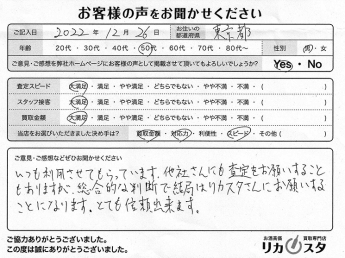 お客様の声をお聞かせください
ご記入日 2022年 12月 26日 お住いの都道府県 東京都
年齢 20代・30代・40代・50代・60代・70代・80代〜 性別 男・女
ご意見・ご感想を弊社ホームページにお客様の声として掲載させて頂いてもよろしいでしょうか? Yes・No
査定スピード 大満足・満足・やや満足・どちらでもない・やや不満・不満・( )
スタッフ接客 大満足・満足・やや満足・どちらでもない・やや不満・不満・( )
買取金額 大満足・満足・やや満足・どちらでもない・やや不満・不満・( )
当店をお選びいただきました決め手は? 買取金額・対応力・利便性・スピード・その他( )
ご意見・ご感想などぜひお聞かせください
いつも利用させてもらっています。他社さんにも査定をお願いすること
もありますが、総合的な判断で結局はリカスタさんにお願いする
ことになります。とても信頼出来ます。
ご協力ありがとうございました。
この度は誠にありがとうございました。
お酒高価 買取専門店
リカスタ